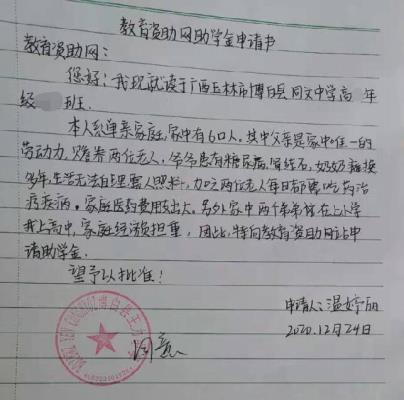 教育资助网助学金申请书
教育资助网：
您好：我现就读于广西玉林市博白县同文中学高 年
经 班.
本人系单亲家庭，家中有6口人，其中父亲是家中唯一的
劳动力，赡养两位老人，爷爷患有糖尿病、肾结石，奶奶瘫痪
多年，生活无法自理需人照料，加之两位老人每日都需吃药治
疗疾病。家庭医药费用支出大。另外家中两个弟弟皆在上小学
我上高中，家庭经济负担重，因此，特向教育资助网站申
请助学金。
望予以批准！
申请人：温婷丽
2020.12.24日
同意